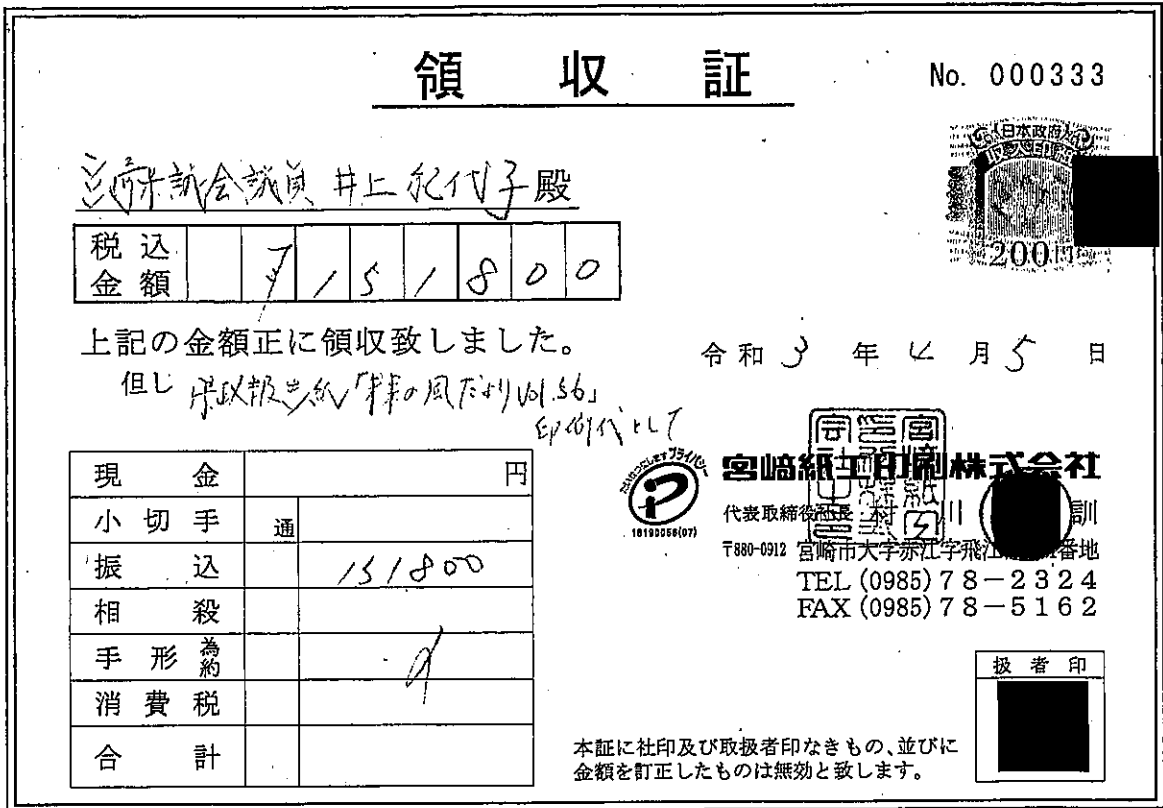 領収証
No. 000333
日本政府
200円
宮崎県議会議員 井上紀代子殿
税込金額 ¥151800
上記の金額正に領収致しました。
令和3年4月5日
但し 県政報告紙「未来の風だよりVol.56」
印刷代として
現金 円
小切手 通
振込 151800
相殺
手形 為約
消費税
合計
プライバシー
18190056(07)
宮崎紙工印刷株式会社
代表取締役社長 村川 訓
〒880-0912 宮崎市大字赤江字飛江 番地
TEL (0985) 78-2324
FAX (0985) 78-5162
扱者印
本証に社印及び取扱者印なきもの、並びに
金額を訂正したものは無効と致します。